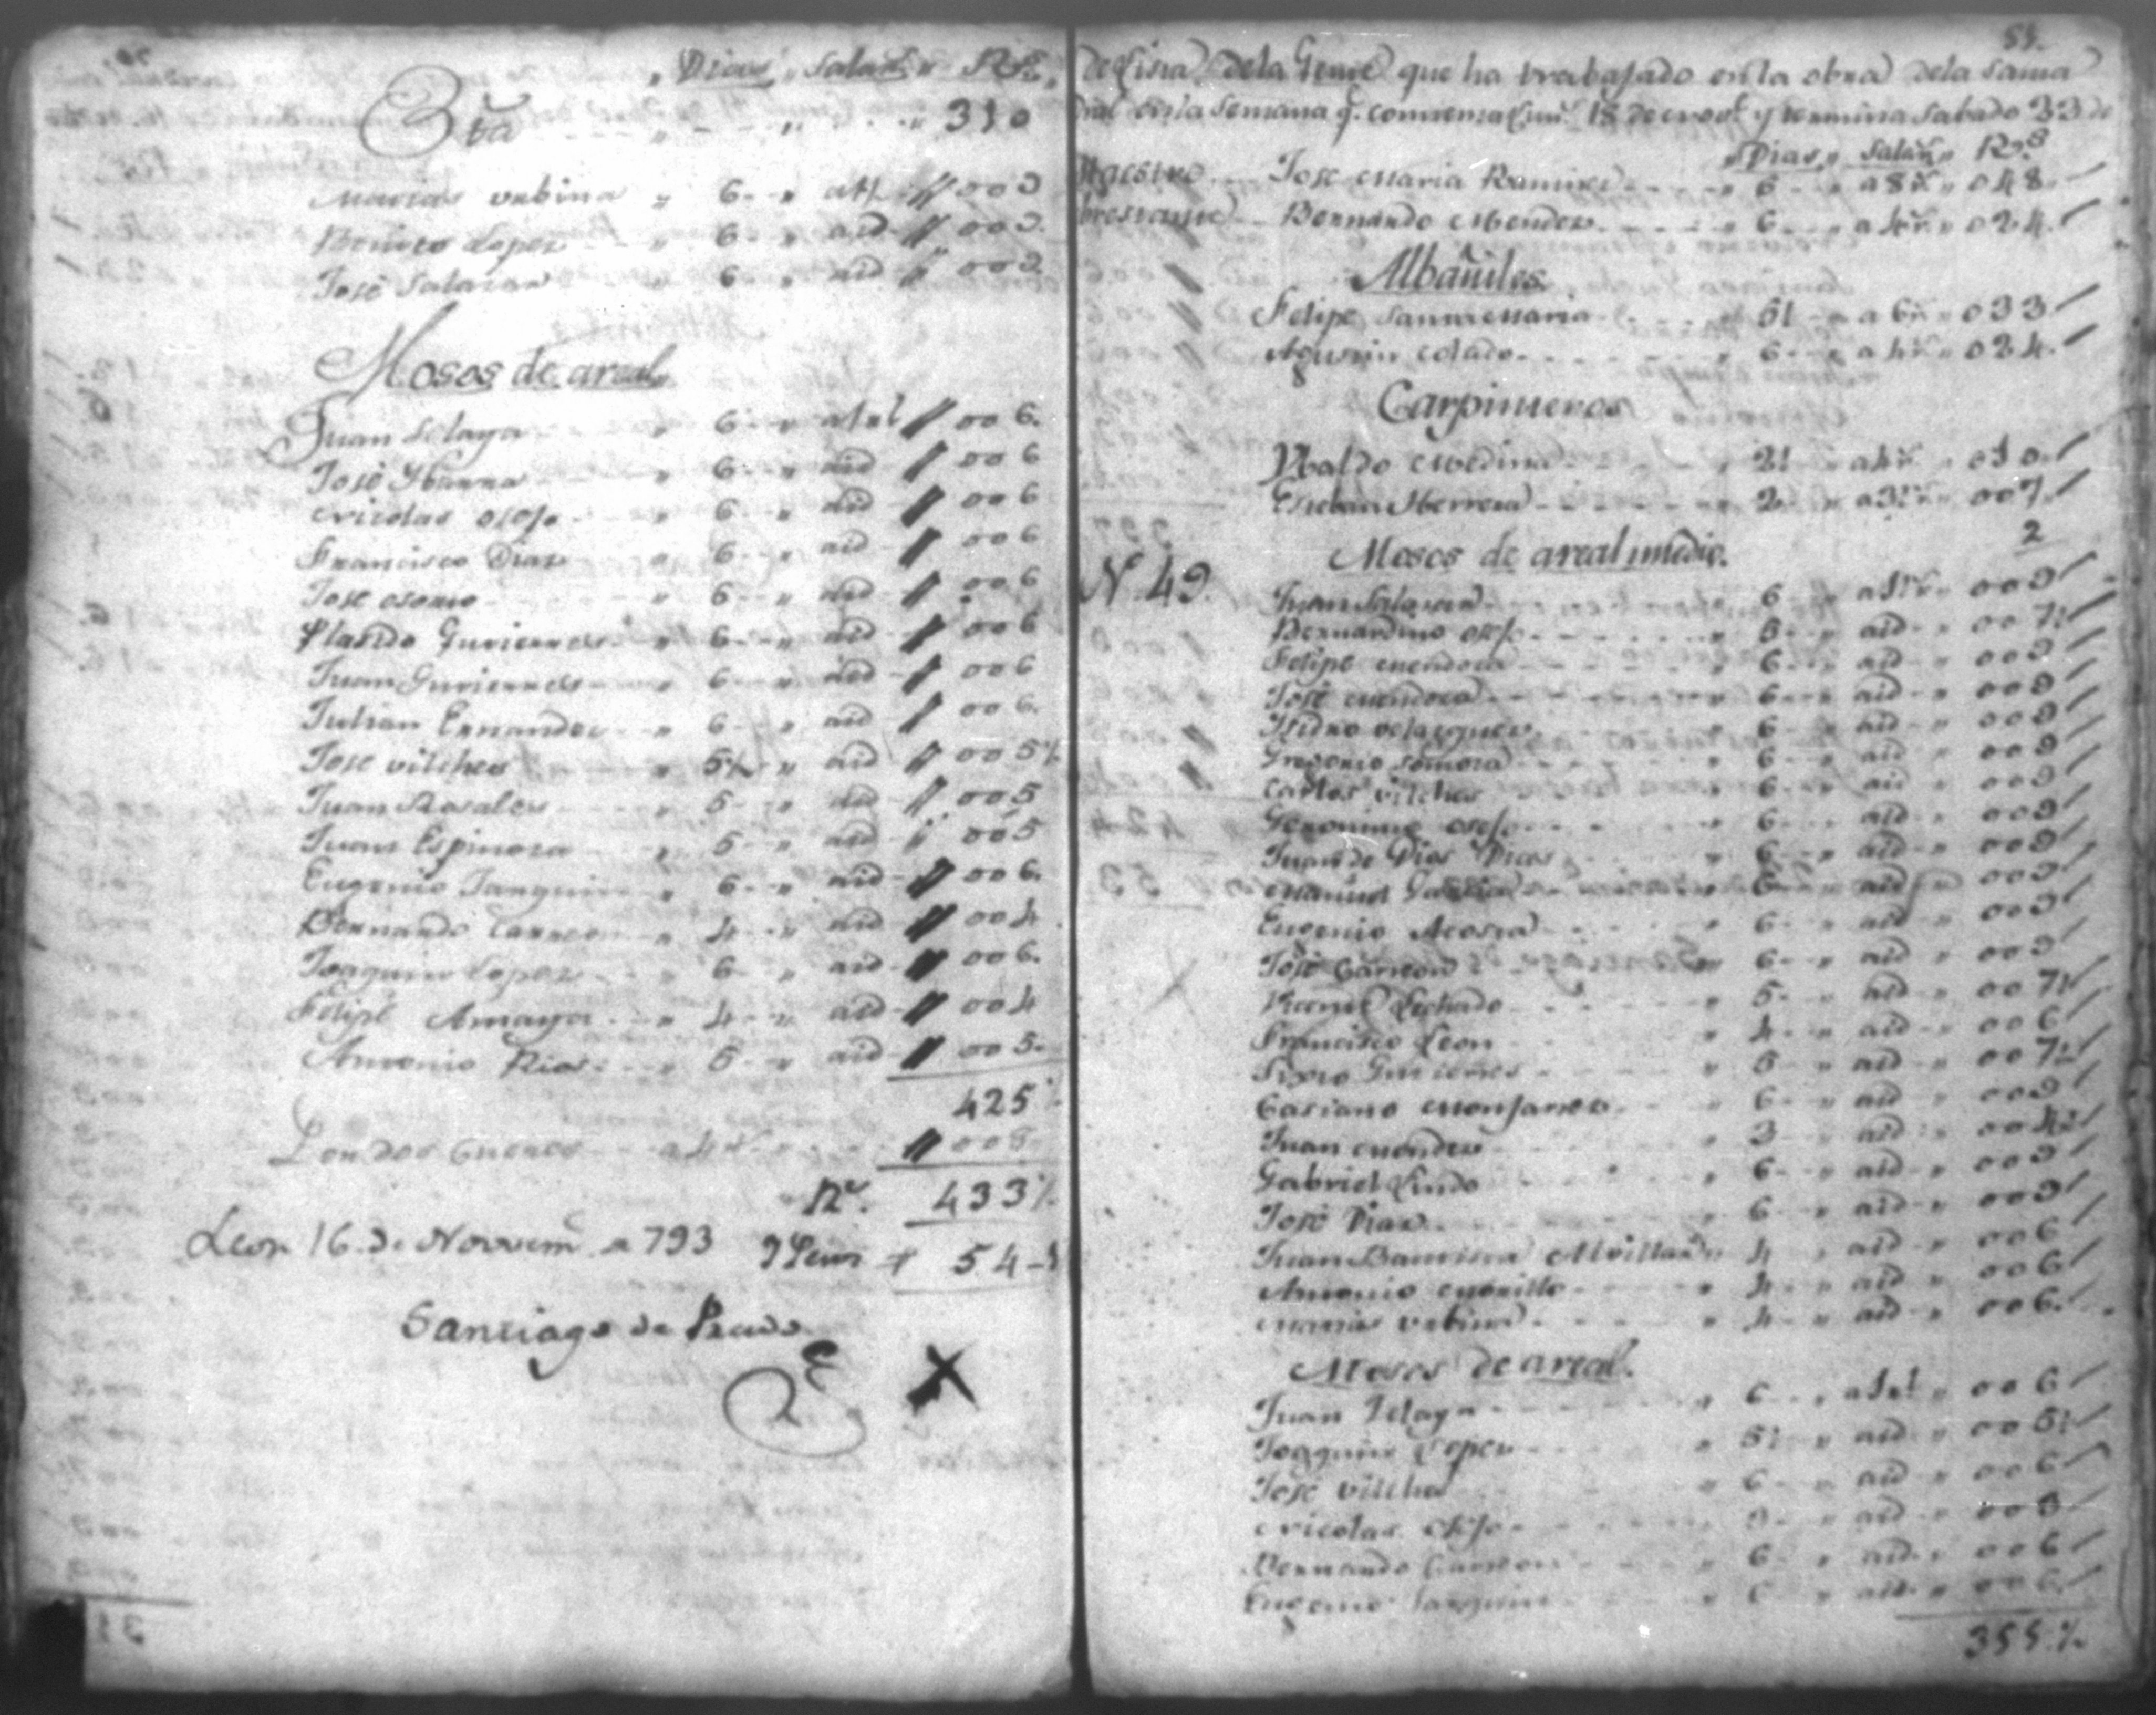 Dias Salar.s Rs.
Bta 310
Matias urbina 6 a 1½ 009
Benito Lopez 6 aid 009
José Salazar 6 aid 009
Mosos de a real
Juan Selaya 6 a 1 rl 006.
José Ybarra 6 aid 006
Nicolas osejo 6 aid 006
Francisco Diaz 6 aid 006
José osorio 6 aid 006
Plasido Gutierres 6 aid 006
Juan Gutierres 6 aid 006
Julian Ernandez 6 aid 006.
Jose vilches 5½ aid 005½
Juan Rosales 5 aid 005
Juan Espinoza 5 aid 005
Eugenio 6 aid 006.
Bernardo 4 aid 004
Joaquin Lopez 6 aid 006.
Felipe Amaya 4 aid 004
Antonio Rios 5 aid 005.
425½
Por dos cueros a 4 r 008
Rs. 433½
Leon 16. de Noviem.e de 793 54-1
Santiago de Prado
55.
de Lista de la Gente que ha trabajado en la obra de la santa
en la semana q.e comiensa Lun.s 18 de y termina sabado 23 de
Dias Salar.s R.s
Maestro Jose Maria Ramires 6 a 8 r.s 048.
brestante Bernardo Mendez 6 a 4 r.s 024.
Albañiles
Felipe Santa Maria 5½ a 6 r.s 033
Agustin 6 a 4 r.s 024.
Carpinteros
Ubaldo Medina 2½ a 4 r.s 010.
Esteban Herrera 2 a 3½ r.s 007.
N. 49. Mosos de a real i medio. 2
Juan Salazar 6 a 1½ r.s 009
Bernardino osejo 5 aid 007½
Felipe mendoza 6 aid 009
José mendoza 6 aid 009
Isidro velasques 6 aid 009
Gregorio 6 aid 009
Carlos vilches 6 aid 009
Geronimo osejo 6 aid 009
Juan de Dios 6 aid 009
Manuel Garcia 6 aid 009
Eugenio Acosta 6 aid 009
José 6 aid 009
Vicente 5 aid 007½
Francisco Leon 4 aid 006
Sixto Gutierres 5 aid 007½
Casiano Monjarres 6 aid 009
Juan mendez 3 aid 004½
Gabriel Lindo 6 aid 009
José Diaz 6 aid 009
Juan Bautista 4 aid 006
Antonio morillo 4 aid 006
Matias urbina 4 aid 006.
Mosos de a real.
Juan Selaya 6 a 1 rl 006
Joaquin Lopez 5½ aid 005½
José vilches 6 aid 006
Nicolas osejo aid
Bernardo 6 aid 006
Eugenio 6 aid 006.
355.½